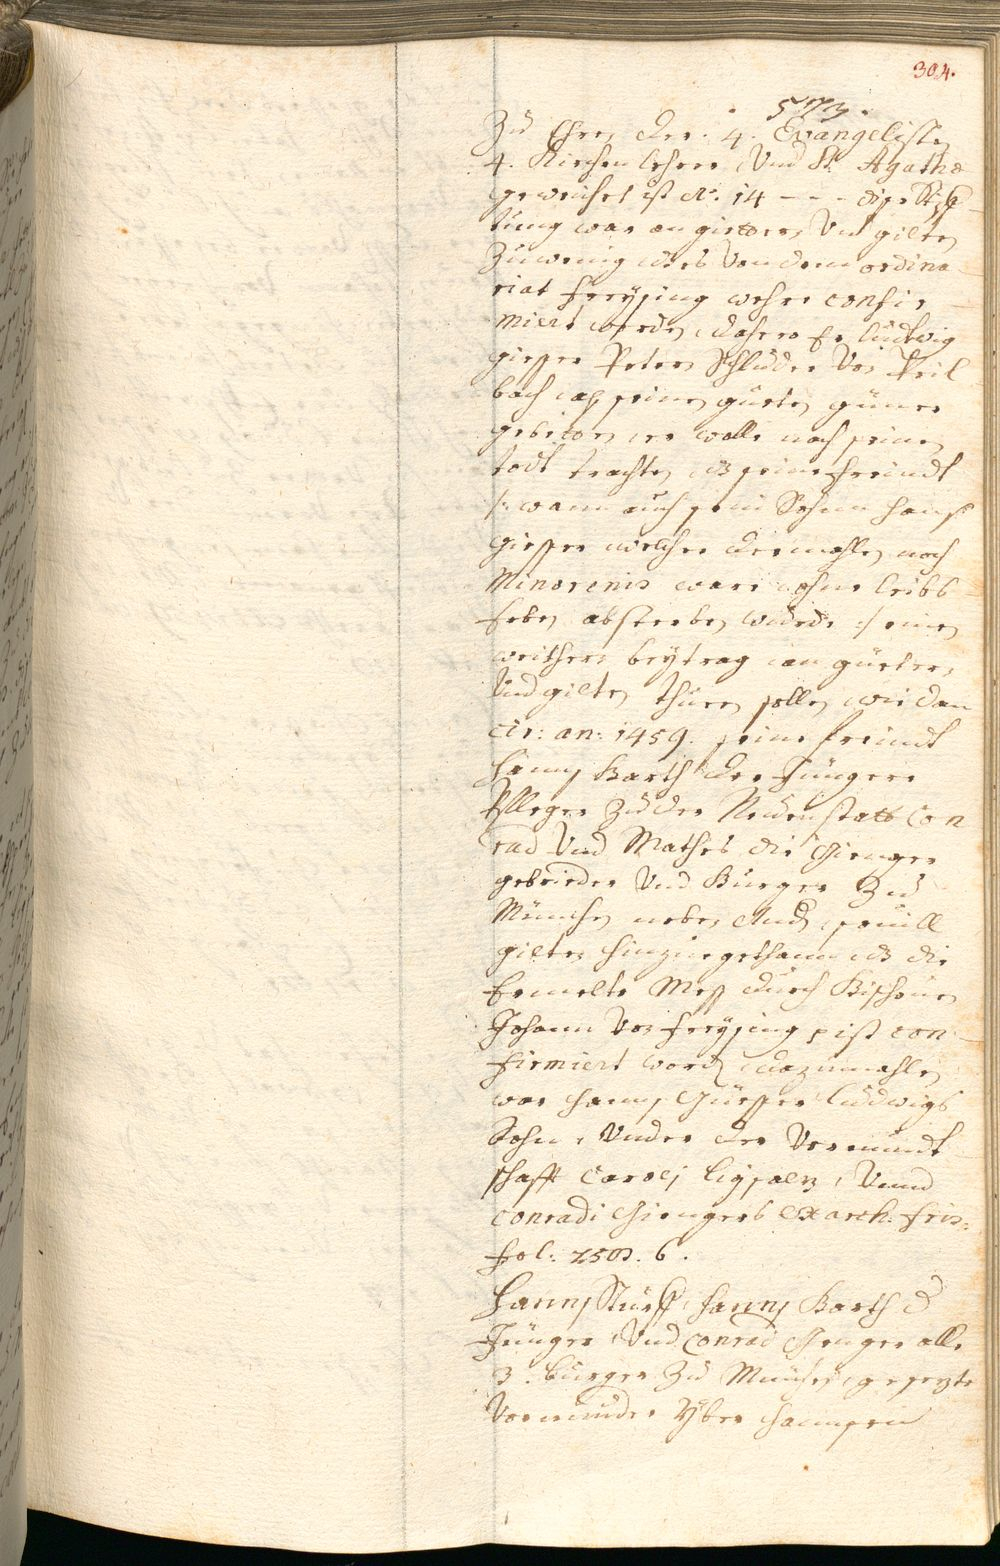 304.
573.
Zu Ehren der. 4. Evangelisten
4. Kirchen lehrer, Und St. Agatha
geweichet ist No. 14 - - - dise Stif
tung war an güettern Und gilten
Zuwenig als Von dem ordina
riat Freÿsing wehre confir
miert worden, dahero Er Ludwig
giesser Petern Schluder Von Weil
bach als seinen gueten günner
gebetten, er wolle nach seinen
todt trachten, das seine freindt
/: wann auch sein Sohnn Hanß
giesser welcher dermahlen noch
Minorenis ware ohne leibs
Erben absterben wurde :/ einen
weithern beÿtrag an güetern,
Und gilten thuen sollen, wie dan
cir: an: 1459. seine freindt
Hanns Barth der Jüngere
Pfleger Zu der Neuenstatt Con
rad Und Mathes die Gienger
gebrieder Und Burger Zu
München neben Andern souill
gilten hinzuegethann, das die
Ermelte Mess durch Bischouen
Johann Von Freÿsing ist con
firmiert worden, dazumahlen
war Hanns Güesser Ludwigs
Sohn, Under der Vormundt
schafft Caroli ligsalz, Unnd
Conradi Giengers Ex arch: Fris:
Fol: 250. 6.
Hanns Stüpf, Hanns Barth d
Jünger, Und Conrad Gienger alle
3. burger Zu München, gesezte
Vormunder Yber Hannsen